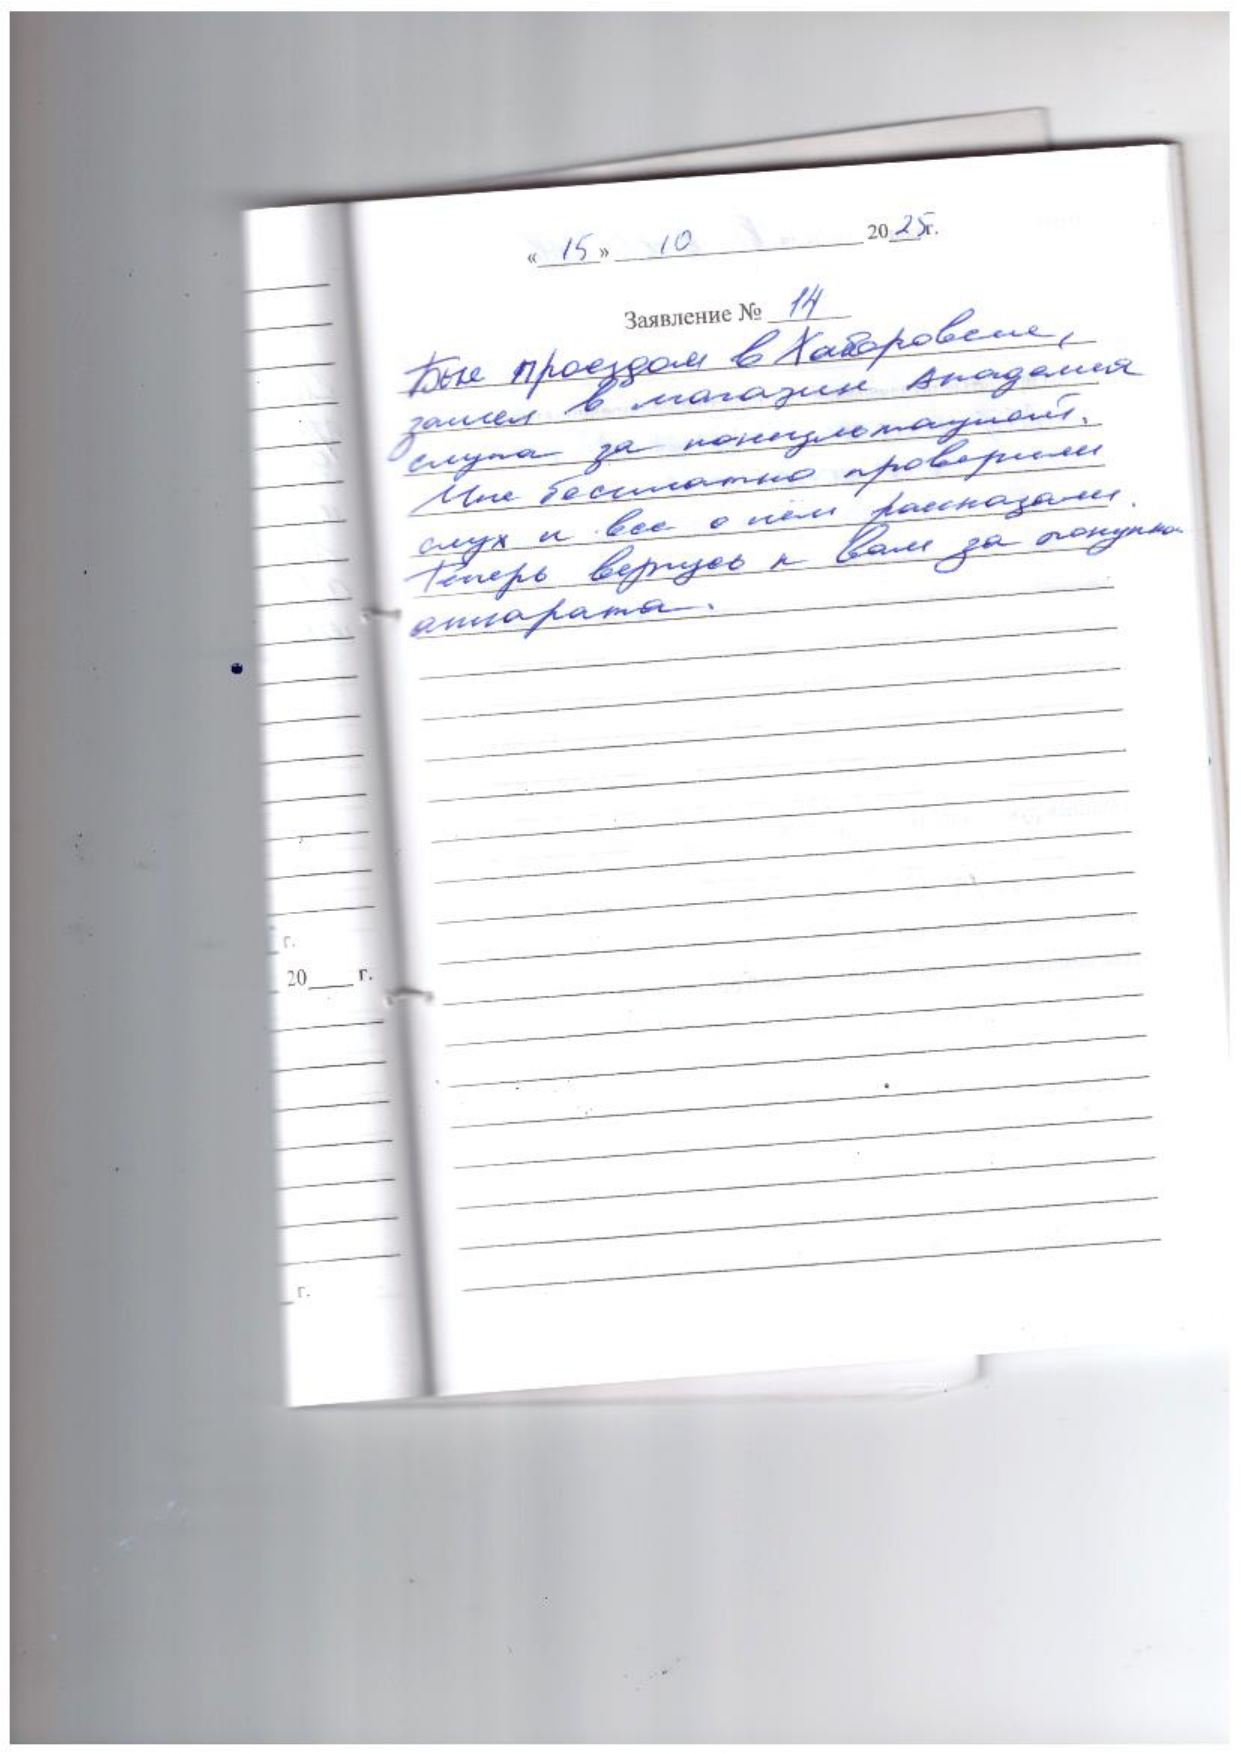 « 15 » 10 2025г.
Заявление № 14
Был проездом в Хабаровске,
зашел в магазин Академия
слуха за консультацией.
Мне бесплатно проверили
слух и все о нём рассказали.
Теперь вернусь к вам за покупкой
аппарата.
г.
20____ г.
г.